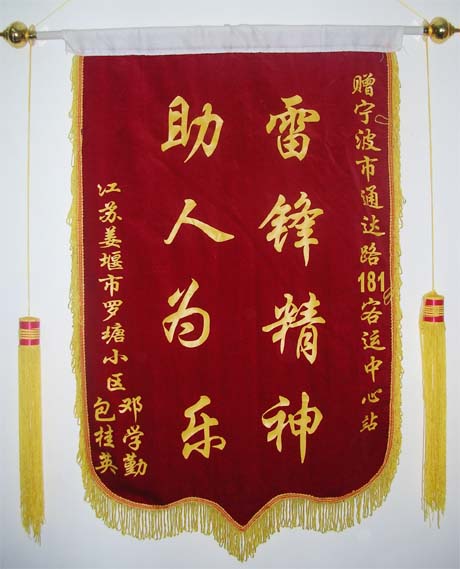 赠宁波市通达路181客运中心站
雷锋精神
助人为乐
江苏姜堰市罗塘小区
邓学勤
包桂英